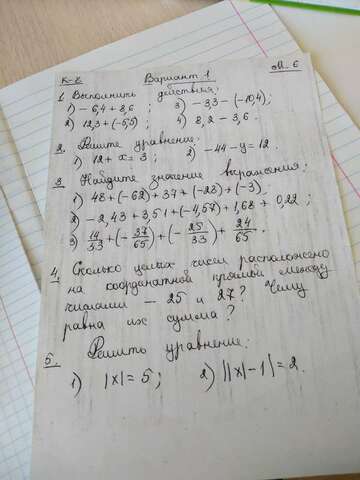 К-8 Вариант 1 М. 6
1. Выполнить действия:
1) -6,4 + 3,6 ; 3) -3,3 - (-10,4);
2) 12,3 + (-5,5) ; 4) 8,2 - 3,6.
2. Решите уравнение:
1) 12 + x = 3 ; 2) -44 - y = 12.
3. Найдите значение выражения:
1) 48 + (-62) + 37 + (-28) + (-3)
2) -2,43 + 3,51 + (-4,57) + 1,68 + 0,22 ;
3) 14/33 + (-37/65) + (-25/33) + 24/65.
4. Сколько целых чисел расположено
на координатной прямой между
числами -25 и 27? Чему
равна их сумма?
5. Решить уравнение:
1) |x| = 5 ; 2) ||x| - 1| = 2.